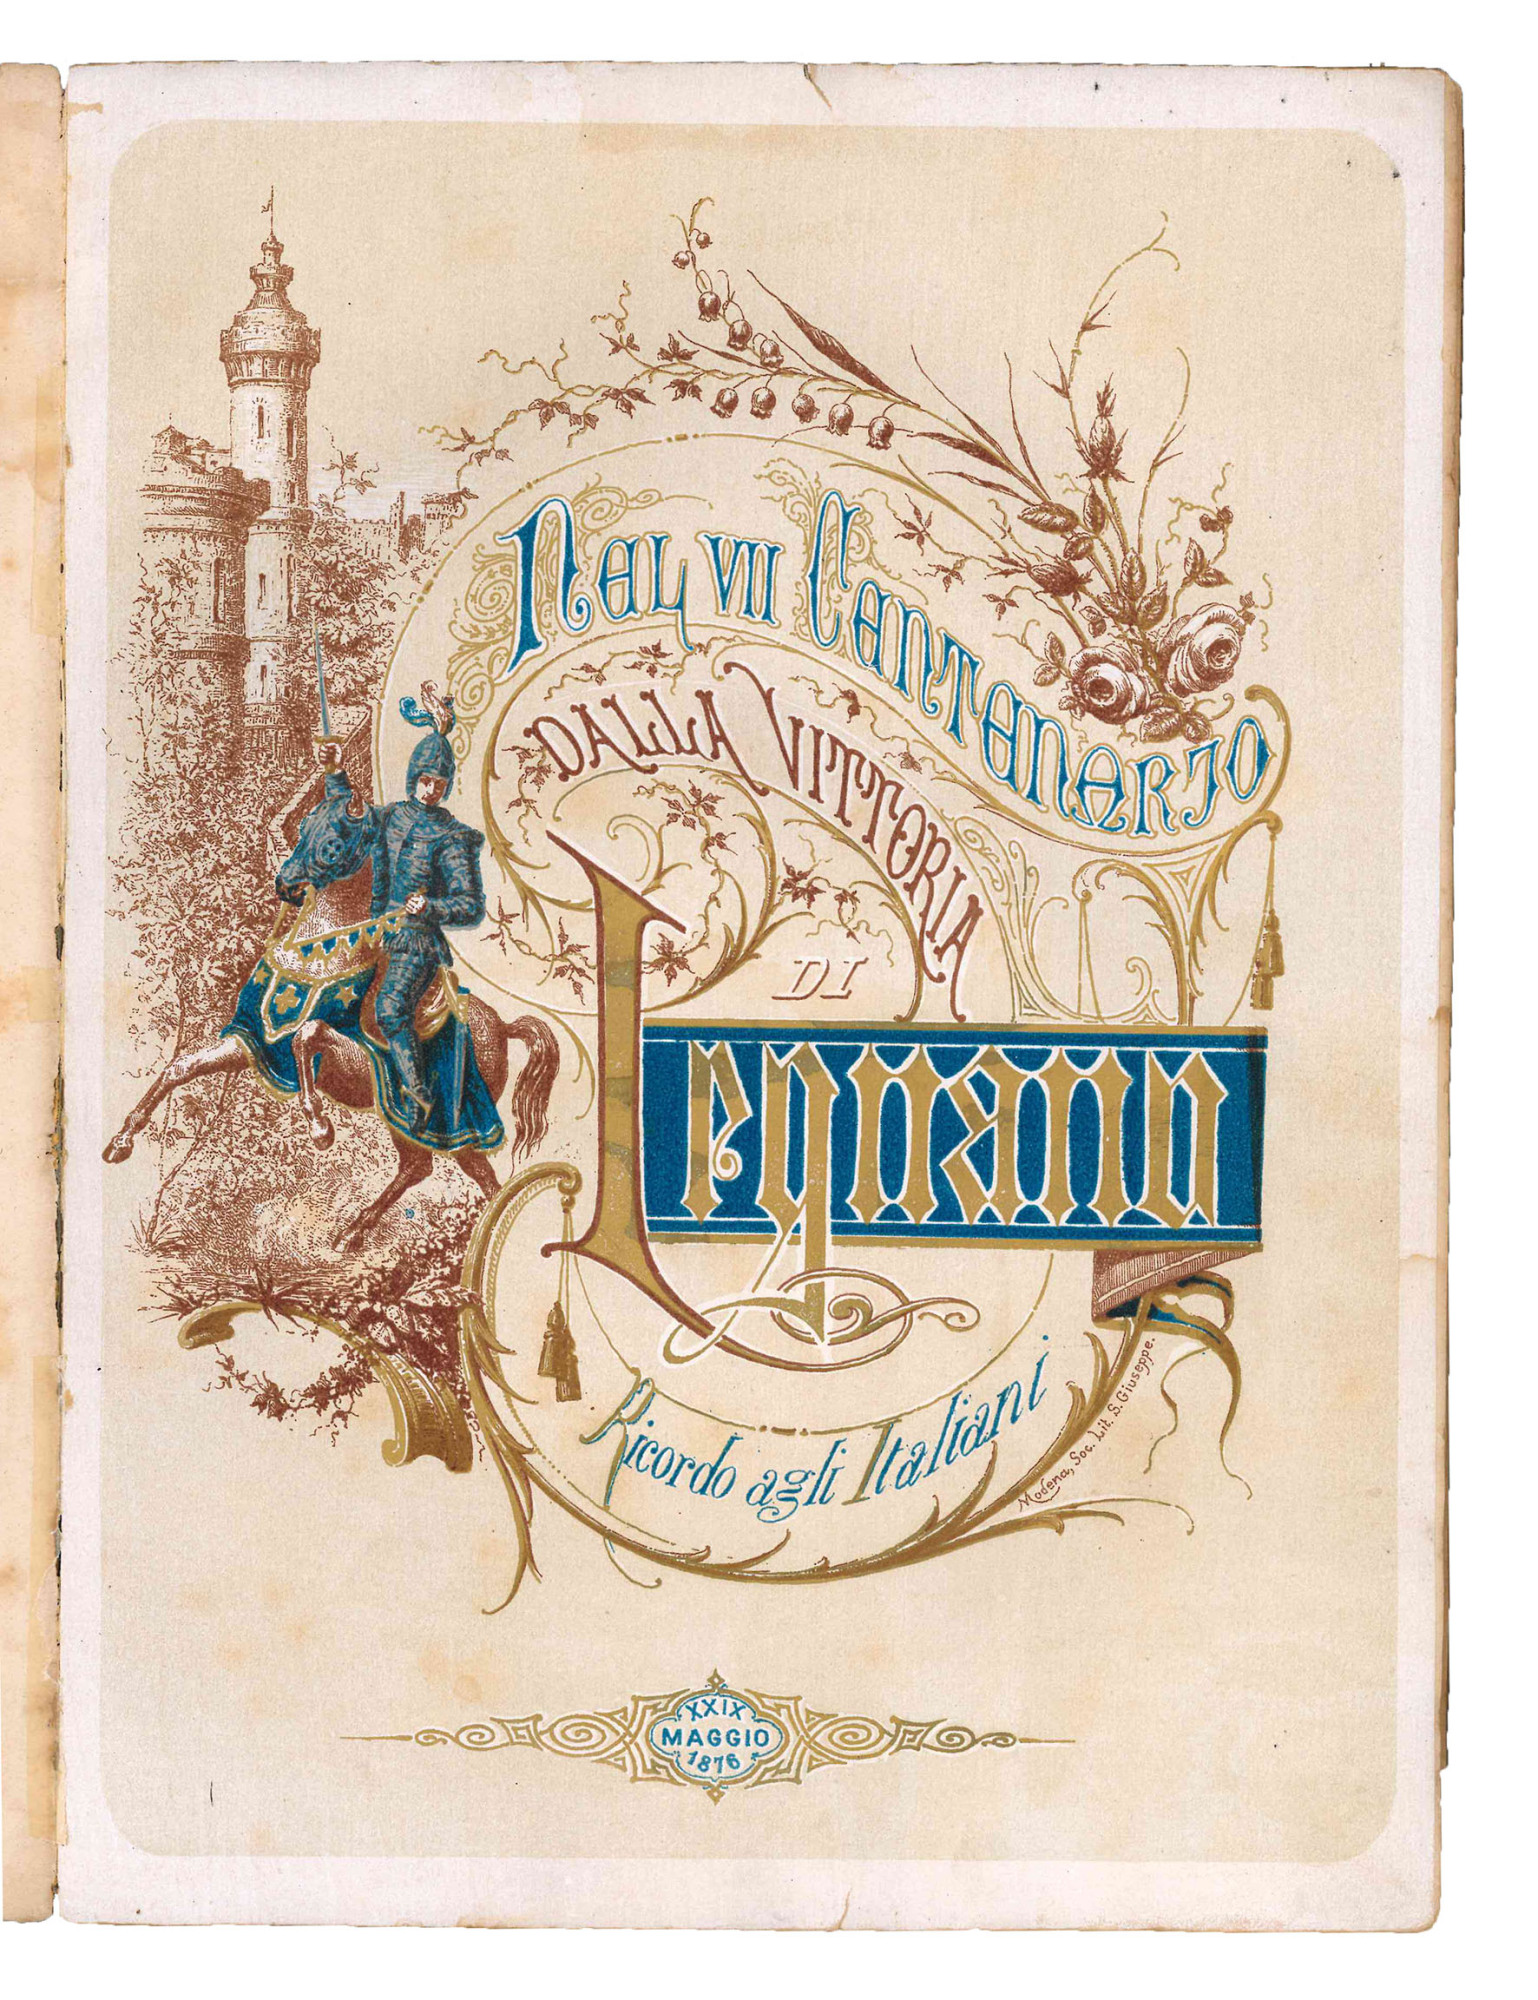 Nel VII Centenario
DALLA VITTORIA
DI
Legnano
Ricordo agli Italiani
Modena, Soc. Lit. S. Giuseppe.
XXIX
MAGGIO
1876